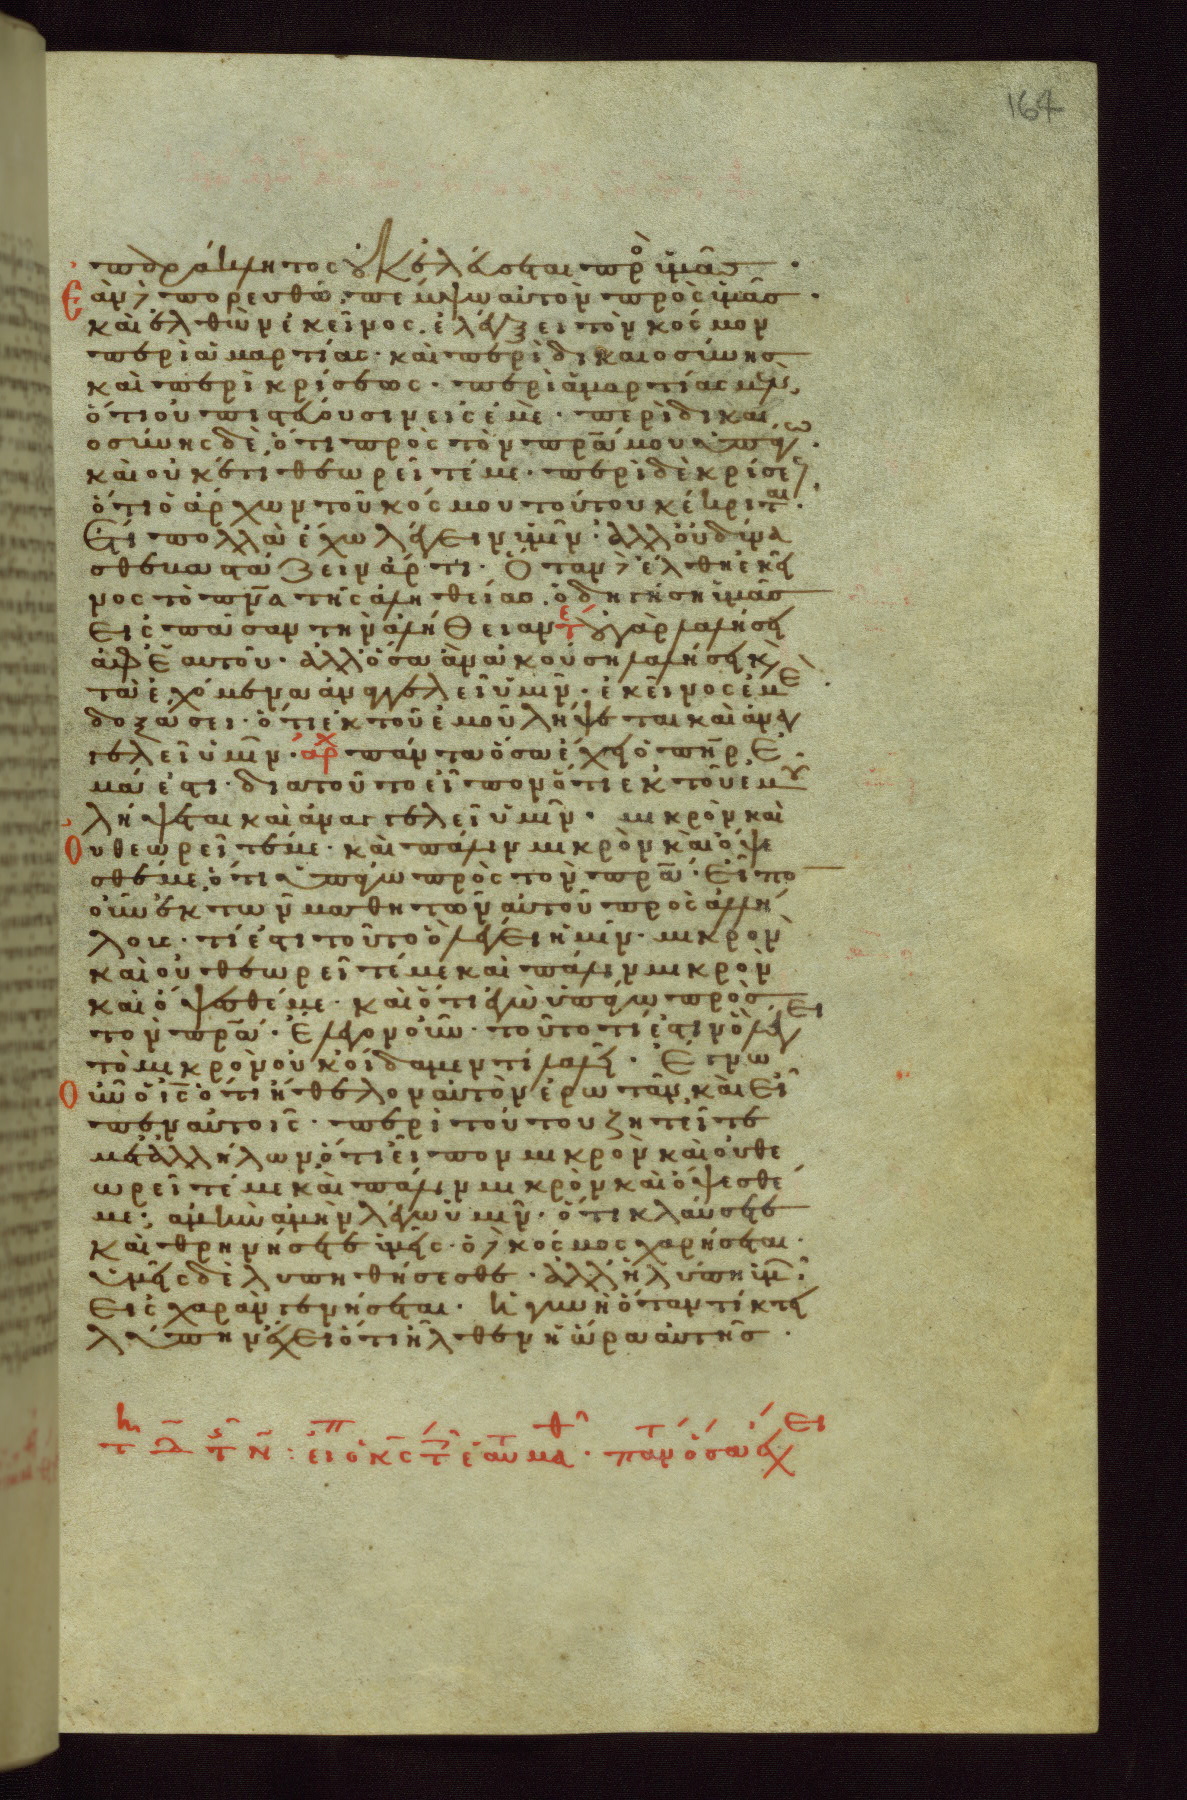 164
παράκλητος οὐκ ἐλεύσεται πρὸ ὑμᾶς ·
Ἐὰν δὲ πορευθῶ, πέμψω αὐτὸν πρὸς ὑμᾶς ·
καὶ ἐλθὼν ἐκεῖνος, ἐλέγξει τὸν κόσμον
περὶ ἁμαρτίας · καὶ περὶ δικαιοσύνης
καὶ περὶ κρίσεως · περὶ ἁμαρτίας μὲν,
ὅτι οὐ πιστεύουσιν εἰς ἐμὲ · περὶ δικαι
οσύνης δὲ, ὅτι πρὸς τὸν πρ̅α̅ μου ὑπάγω ·
καὶ οὐκέτι θεωρεῖτέ με · περὶ δὲ κρίσεως
ὅτι ὁ ἄρχων τοῦ κόσμου τούτου κέκριται ·
Ἔτι πολλὰ ἔχω λέγειν ὑμῖν · ἀλλ οὐ δύνα
σθε βαστάζειν ἄρτι · Ὅταν δὲ ἔλθη ἐκεῖ
νος τὸ πν̅α̅ τῆς ἀληθείας, ὁδηγήση ὑμᾶς
εἰς πᾶσαν τὴν ἀλήθειαν τέ οὐ γὰρ λαλήσει
ἀφ ἑαυτοῦ · ἀλλ ὅσα ἂν ἀκούση λαλήσει κ̀
τὰ ἐρχόμενα ἀναγγελεῖ ὑμῖν · ἐκεῖνος ἐμὲ
δοξάσει · ὅτι ἐκ τοῦ ἐμοῦ λήψεται καὶ ἀναγ
γελεῖ ὑμῖν · ἀρχ πάντα ὅσα ἔχει ὁ πη̅ρ ἐ
μά ἐστι · διατοῦτο εἶπον ὅτι ἐκ τοῦ ἐμοῦ
λήψεται καὶ ἀναγγελεῖ ὑμῖν · μικρὸν καὶ
Οὐ θεωρεῖτέ με · καὶ πάλιν μικρὸν καὶ ὄψε
σθέ με, ὅτι ὑπάγω πρὸς τὸν πρ̅α̅ · Εἶπο
οὖν ἐκ τῶν μαθητῶν αὐτοῦ πρὸς ἀλλή
λους · τί ἐστι τοῦτο ὃ λέγει ἡμῖν · μικρὸν
καὶ οὐ θεωρεῖτέ με καὶ πάλιν μικρὸν
καὶ ὄψεσθέ με · καὶ ὅτι ἐγὼ ὑπάγω πρὸς
τὸν πρ̅α̅ · Ἔλεγον οὖν · τοῦτο τί ἐστιν ὃ λέγει
τὸ μικρὸν οὐκ οἴδαμεν τί λαλεῖ · Ἔγνω
Οὖν ὁ ι̅ς̅ ὅτι ἤθελον αὐτὸν ἐρωτᾶν, καὶ εἶ
πεν αὐτοῖς · περὶ τούτου ζητεῖτε
μετ ἀλλήλων, ὅτι εἶπον μικρὸν καὶ οὐ θε
ωρεῖτέ με καὶ πάλιν μικρὸν καὶ ὄψεσθέ
με · ἀμὴν ἀμὴν λέγω ὑμῖν · ὅτι κλαύσετε
καὶ θρηνήσετε ὑμεῖς · ὁ δὲ κόσμος χαρήσεται ·
ὑμεῖς δὲ λυπηθήσεσθε · ἀλλ ἡ λύπη ὑμῶν
εἰς χαρὰν γενήσεται · ἡ γυνὴ ὅταν τίκτει
λύπην ἔχει ὅτι ἦλθεν ἡ ὥρα αὐτῆς ·